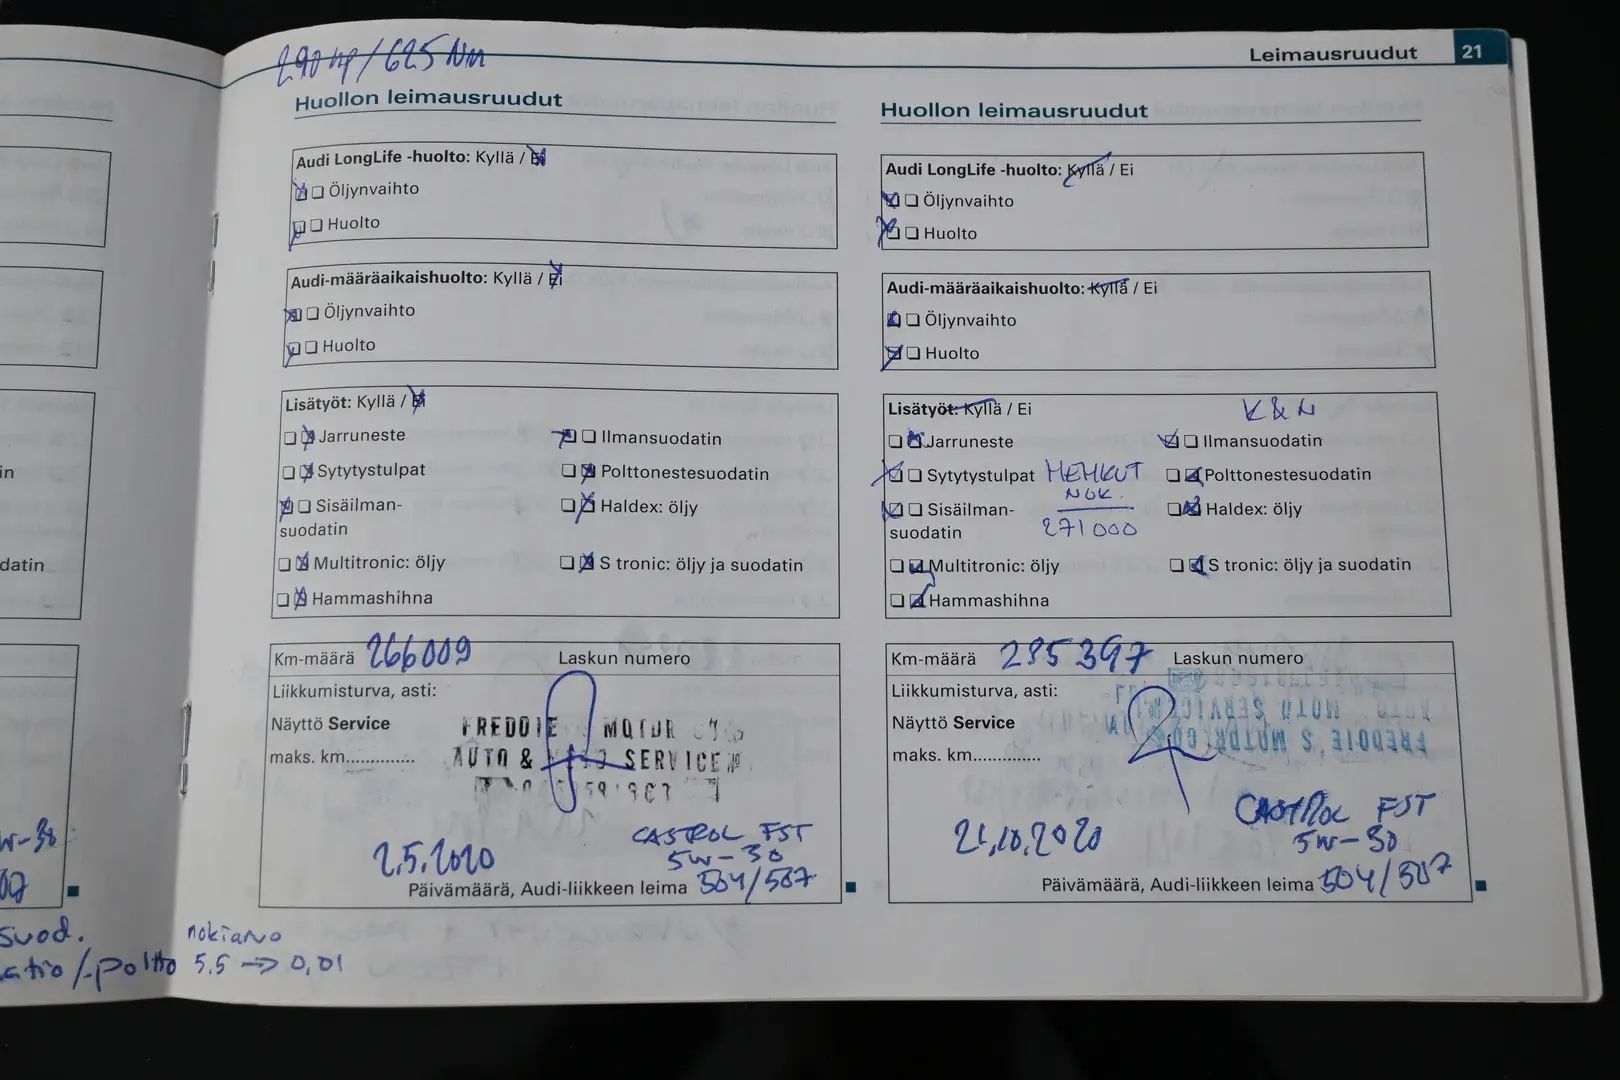 290 hp/625 Nm
Leimausruudut 21
Huollon leimausruudut
Audi LongLife -huolto: Kyllä / Ei
Öljynvaihto
Huolto
Audi-määräaikaishuolto: Kyllä / Ei
Öljynvaihto
Huolto
Lisätyöt: Kyllä / Ei
Jarruneste
Ilmansuodatin
Sytytystulpat
Polttonestesuodatin
Sisäilman-
suodatin
Haldex: öljy
Multitronic: öljy
S tronic: öljy ja suodatin
Hammashihna
Km-määrä 266009 Laskun numero
Liikkumisturva, asti:
Näyttö Service
maks. km..............
FREDDIE MOTOR
AUTO & SERVICE
2.5.2020
CASTROL FST
5W-30
504/507
Päivämäärä, Audi-liikkeen leima
Huollon leimausruudut
Audi LongLife -huolto: Kyllä / Ei
Öljynvaihto
Huolto
Audi-määräaikaishuolto: Kyllä / Ei
Öljynvaihto
Huolto
Lisätyöt: Kyllä / Ei
K&N
Jarruneste
Ilmansuodatin
Sytytystulpat HEHKUT
NGK.
271000
Polttonestesuodatin
Sisäilman-
suodatin
Haldex: öljy
Multitronic: öljy
S tronic: öljy ja suodatin
Hammashihna
Km-määrä 285397 Laskun numero
Liikkumisturva, asti:
Näyttö Service
maks. km..............
FREDDIE'S MOTOR
AUTO MOTO SERVICE
21.10.2020
CASTROL FST
5W-30
504/507
Päivämäärä, Audi-liikkeen leima
in
datin
W-30
07
suod.
atio/-poltto
nokiarvo
5.5 → 0,01